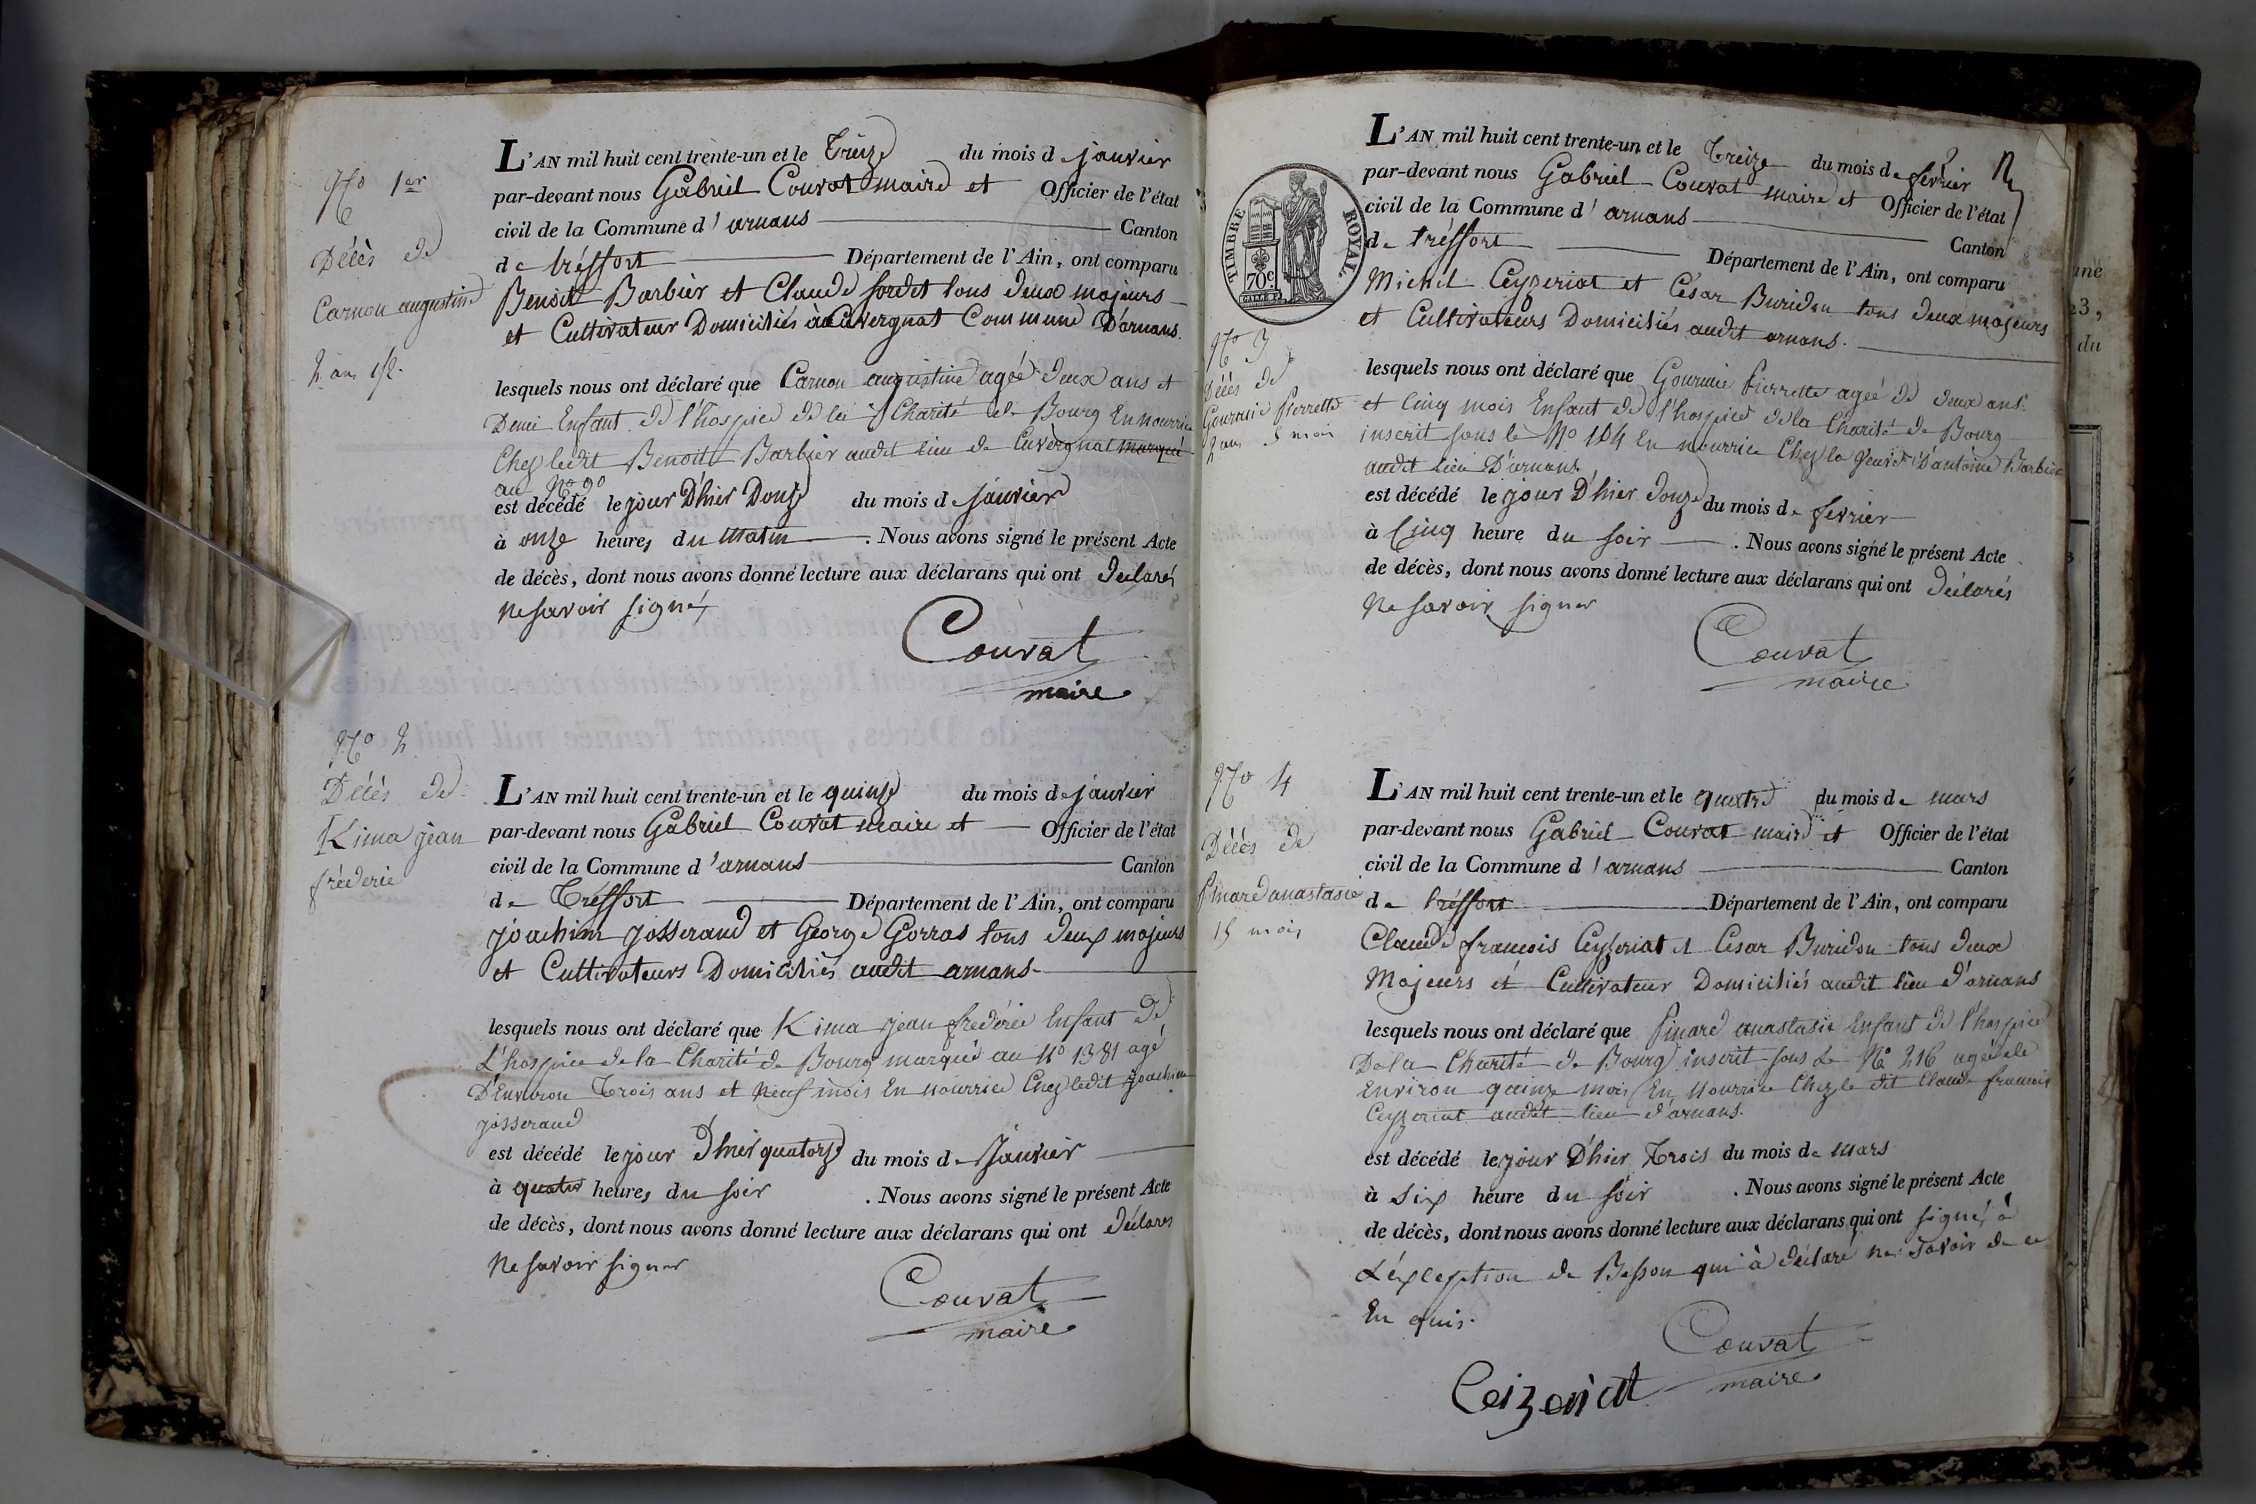 No 1er
Décès de
Carnon augustine
2 ans 1/2.
L'AN mil huit cent trente-un et le Treize du mois de janvier
par-devant nous Gabriel Couvat maire et Officier de l'état
civil de la Commune d'arnans Canton
de tréffort Département de l'Ain, ont comparu
Benoit Barbier et Claude Sordet tous deux majeurs
et Cultivateur Domiciliés à Cuvergnat Commune D'arnans.
lesquels nous ont déclaré que Carnon augustine agée deux ans et
Demi Enfant de l'hospice de la Charité de Bourg En nourrice
Chez ledit Benoit Barbier audit lieu de Cuvergnat marqué
au No 90
est décédé le jour D'hier Douze du mois de janvier
à onze heures du matin. Nous avons signé le présent Acte
de décès, dont nous avons donné lecture aux déclarans qui ont déclarés
Ne savoir signés
Couvat
maire
No 2
Décès de
Kima jean
fréderic
L'AN mil huit cent trente-un et le quinze du mois de janvier
par-devant nous Gabriel Couvat maire et Officier de l'état
civil de la Commune d'arnans Canton
de Tréffort Département de l'Ain, ont comparu
joachim josserand et George Gorras tous deux majeurs
et Cultivateurs Domiciliés audit arnans
lesquels nous ont déclaré que Kima jean frédéric Enfant de
L'hospice de la Charité de Bourg marqué au No 1381 agé
D'Environ Trois ans et neuf mois En nourrice Chez ledit joachim
josserand
est décédé le jour D'hier quatorze du mois de Janvier
à quatre heures du soir. Nous avons signé le présent Acte
de décès, dont nous avons donné lecture aux déclarans qui ont déclarés
Ne savoir signer
Couvat
maire
TIMBRE ROYAL
70c.
No 3
Décès de
Gourmie Pierrette
2 ans 5 mois
2
L'AN mil huit cent trente-un et le Treize du mois de fevrier
par-devant nous Gabriel Couvat maire et Officier de l'état
civil de la Commune d'arnans Canton
de tréffort Département de l'Ain, ont comparu
Michel Ceyzeriat et César Buridon tous deux majeurs
et Cultivateurs Domiciliés audit arnans.
lesquels nous ont déclaré que Gourmie Pierrette agée de deux ans
et Cinq mois Enfant de l'hospice de la Charité de Bourg
inscrit sous le No 104 En nourrice Chez la Veuve D'antoine Barbier
audit lieu D'arnans
est décédé le jour D'hier douze du mois de fevrier
à Cinq heure du soir. Nous avons signé le présent Acte
de décès, dont nous avons donné lecture aux déclarans qui ont déclarés
Ne savoir signer
Couvat
maire
No 4
Décès de
Pinard anastasie
15 mois
L'AN mil huit cent trente-un et le quatre du mois de mars
par-devant nous Gabriel Couvat maire et Officier de l'état
civil de la Commune d'arnans Canton
de tréffort Département de l'Ain, ont comparu
Claude françois Ceyzeriat et Cesar Buridon tous deux
Majeurs et Cultivateur Domiciliés audit lieu d'arnans
lesquels nous ont déclaré que Pinard anastasie Enfant de l'hospice
De la Charité de Bourg inscrit sous Le No 216 agée de
Environ quinze mois En Nourrice Chez le dit Claude francois
Ceyzeriat audit lieu d'arnans.
est décédé le jour D'hier Trois du mois de mars
à Six heure du soir. Nous avons signé le présent Acte
de décès, dont nous avons donné lecture aux déclarans qui ont signés à
L'éxception de Besson qui à déclaré ne Savoir de ce
En quis.
Couvat
maire
Ceizeriat